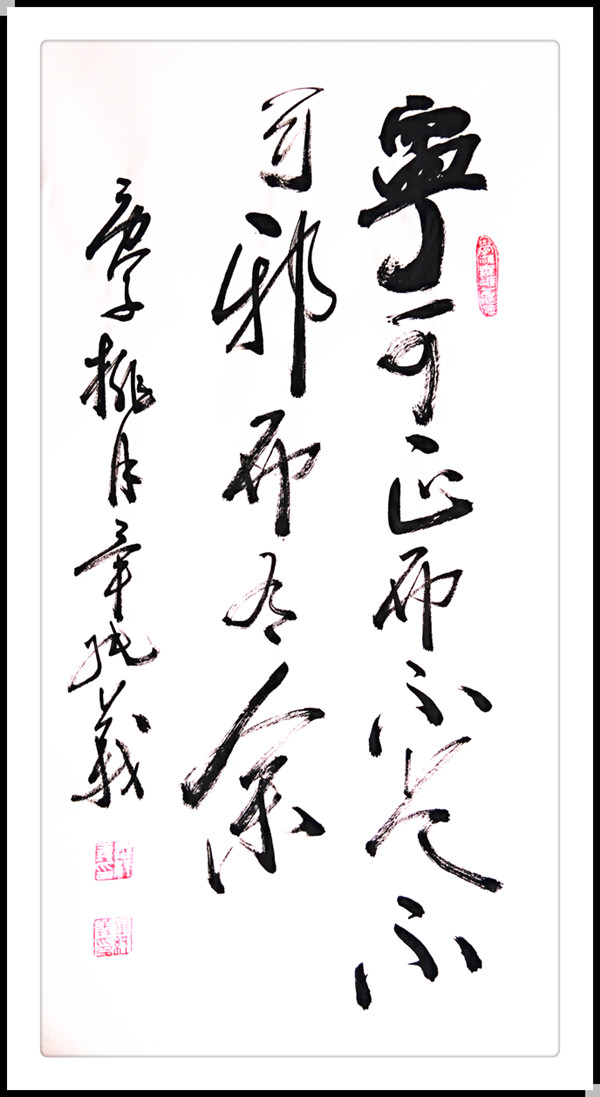 寧可正而不足不
可邪而有余
庚子桃月章義